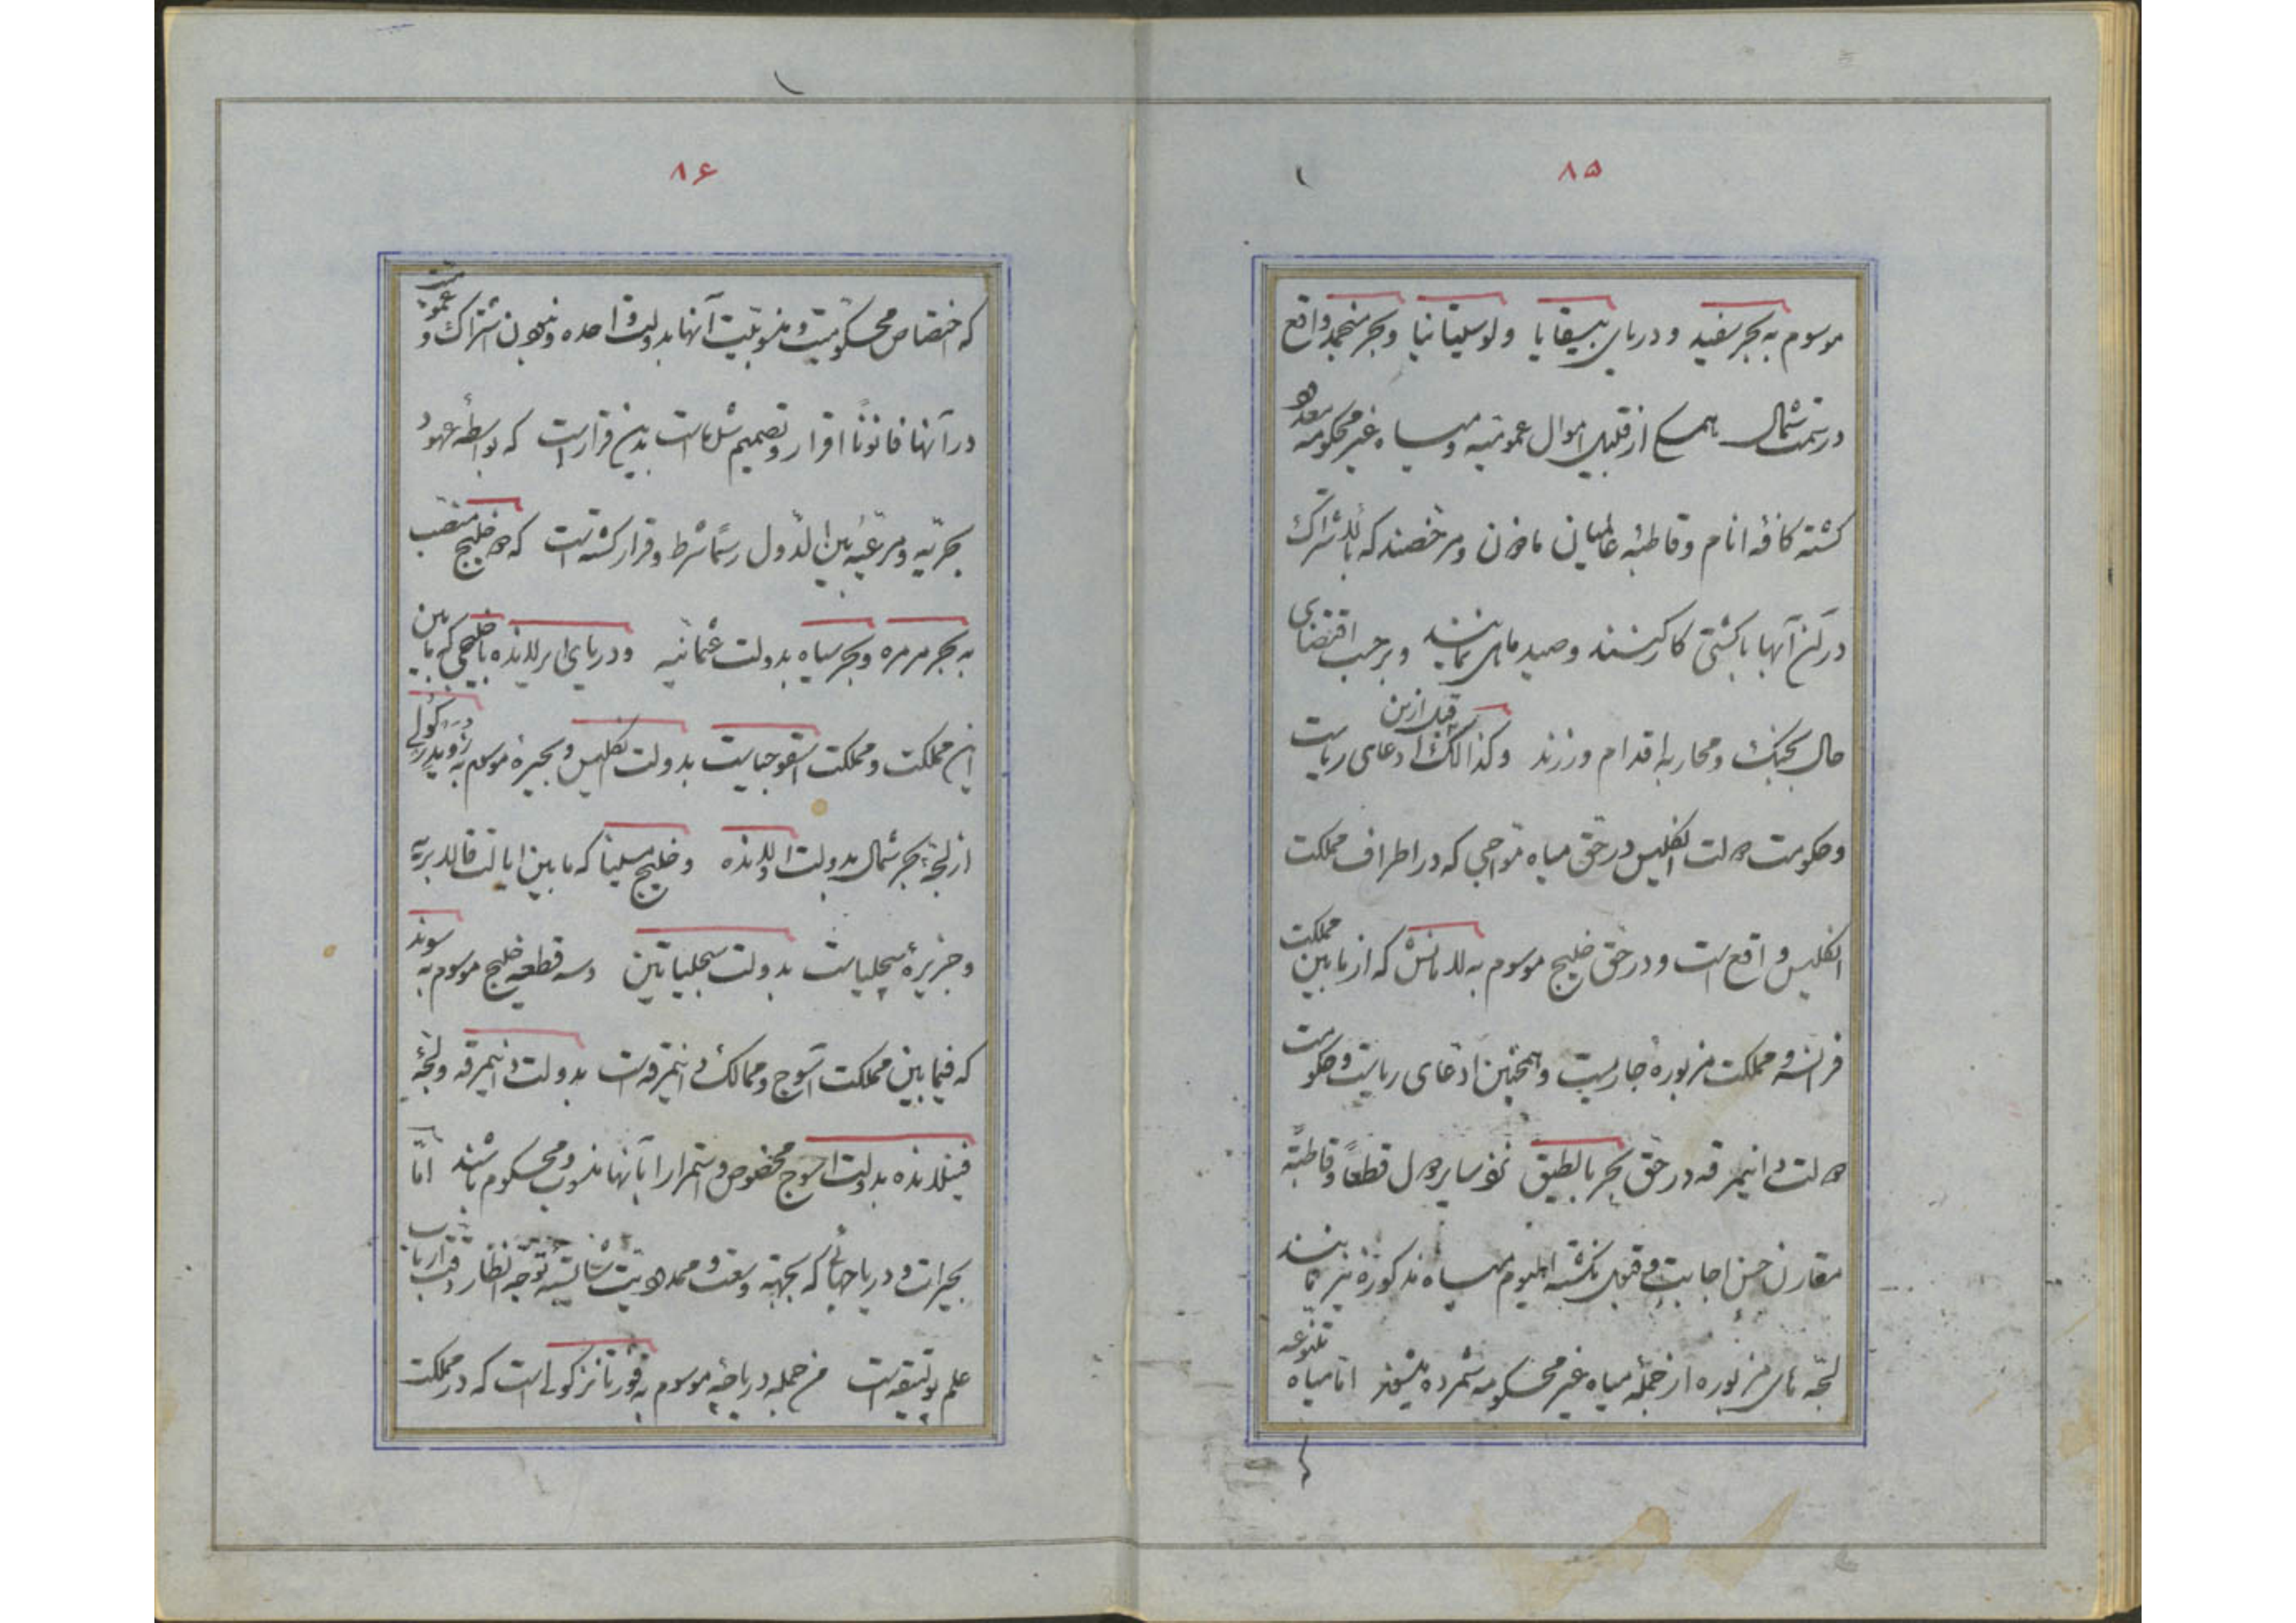 ۸۵
موسوم به بحر سفید و دریای بیسقایا ولوسیتانیا و بحر منجمد واقع
در سمت شمال از قبیل اموال عمومیه و میاه غیر محکومه معدود
کشته کافهٔ انام و قاطبهٔ عالمیان مأذون و مرخصند که بالاشتراک
در آنها با کشتی کار کنند و صید ماهی نمایند و برحسب اقتضای
حال بجنک و محاربه اقدام ورزند و کذالک قبل ازین ادعای ریاست
و حکومت دولت انکلیس در حق میاه مواجی که در اطراف مملکت
انکلیس واقع است و در حق خلیج موسوم به لامانش که از مابین مملکت
فرانسه و مملکت مزبوره جاریست و همچنین ادعای ریاست و حکومت
دولت دانیمرقه در حق بحر بالطیق نزد سایر دول قطعاً و قاطبةً
مقارن حسن اجابت و قبول نکشته الیوم میاه مذکوره نیز بمانند
لجّه های مزبوره از جملهٔ میاه غیر محکومه شمرده میشوند اما میاه متنوعه
۸۶
که اختصاص محکومیت و منسوبیت آنها بدولت واحده و بدون اشتراک و عمومیت
در آنها قانوناً اقرار و تصمیم شده است بدین قرار است که بواسطهٔ عهود
بحریّه و مرعیهٔ بین الدول رسماً شرط و قرار کشته است که دو خلیج منتصب
به بحر مرمره و بحر سیاه بدولت عثمانیه و دریای ایرلانده با خلیجی که مابین
این مملکت و مملکت اسقوجیاست بدولت انکلیس و بحیرهٔ موسوم به زویدرزی کولی
از لجهٔ بحر شمال بدولت اولانده و خلیج مسینا که مابین ایالت قالابریه
و جزیرهٔ سجیلیاست بدولت سجیلیاتین و سه قطعه خلیج موسوم به سوند
که فیمابین مملکت اسوج و ممالک دانیمرقه است بدولت دانیمرقه و لجهٔ
فینلانده بدولت اسوج مخصوص و استمراراً بآنها منسوب و محکوم باشند امّا
بحیرات و دریاچهائی که بجهتهٔ وسعت و محدودیت شایستهٔ توجه انظار دقت ارباب
علم بولتیقه است من جمله دریاچهٔ موسوم به قونستانز کولی است که در مملکت